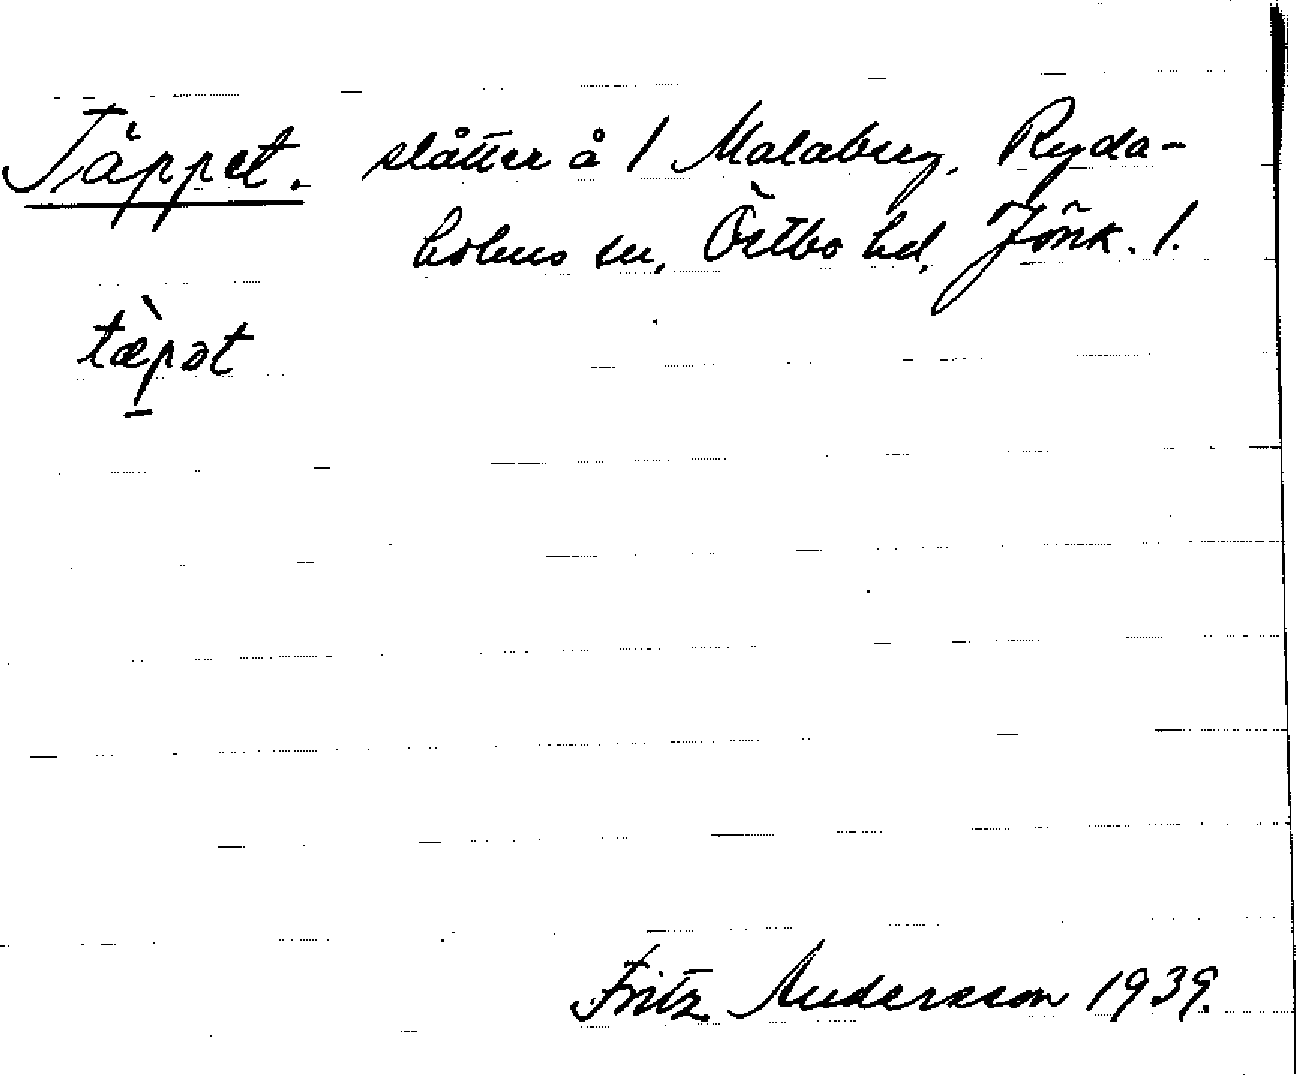 Täppet. slåtter å 1 Malaberg, Ryda-
holms sn, Östbo hd, Jönk. l.
tæ̀pət
Fritz Andersson 1939.